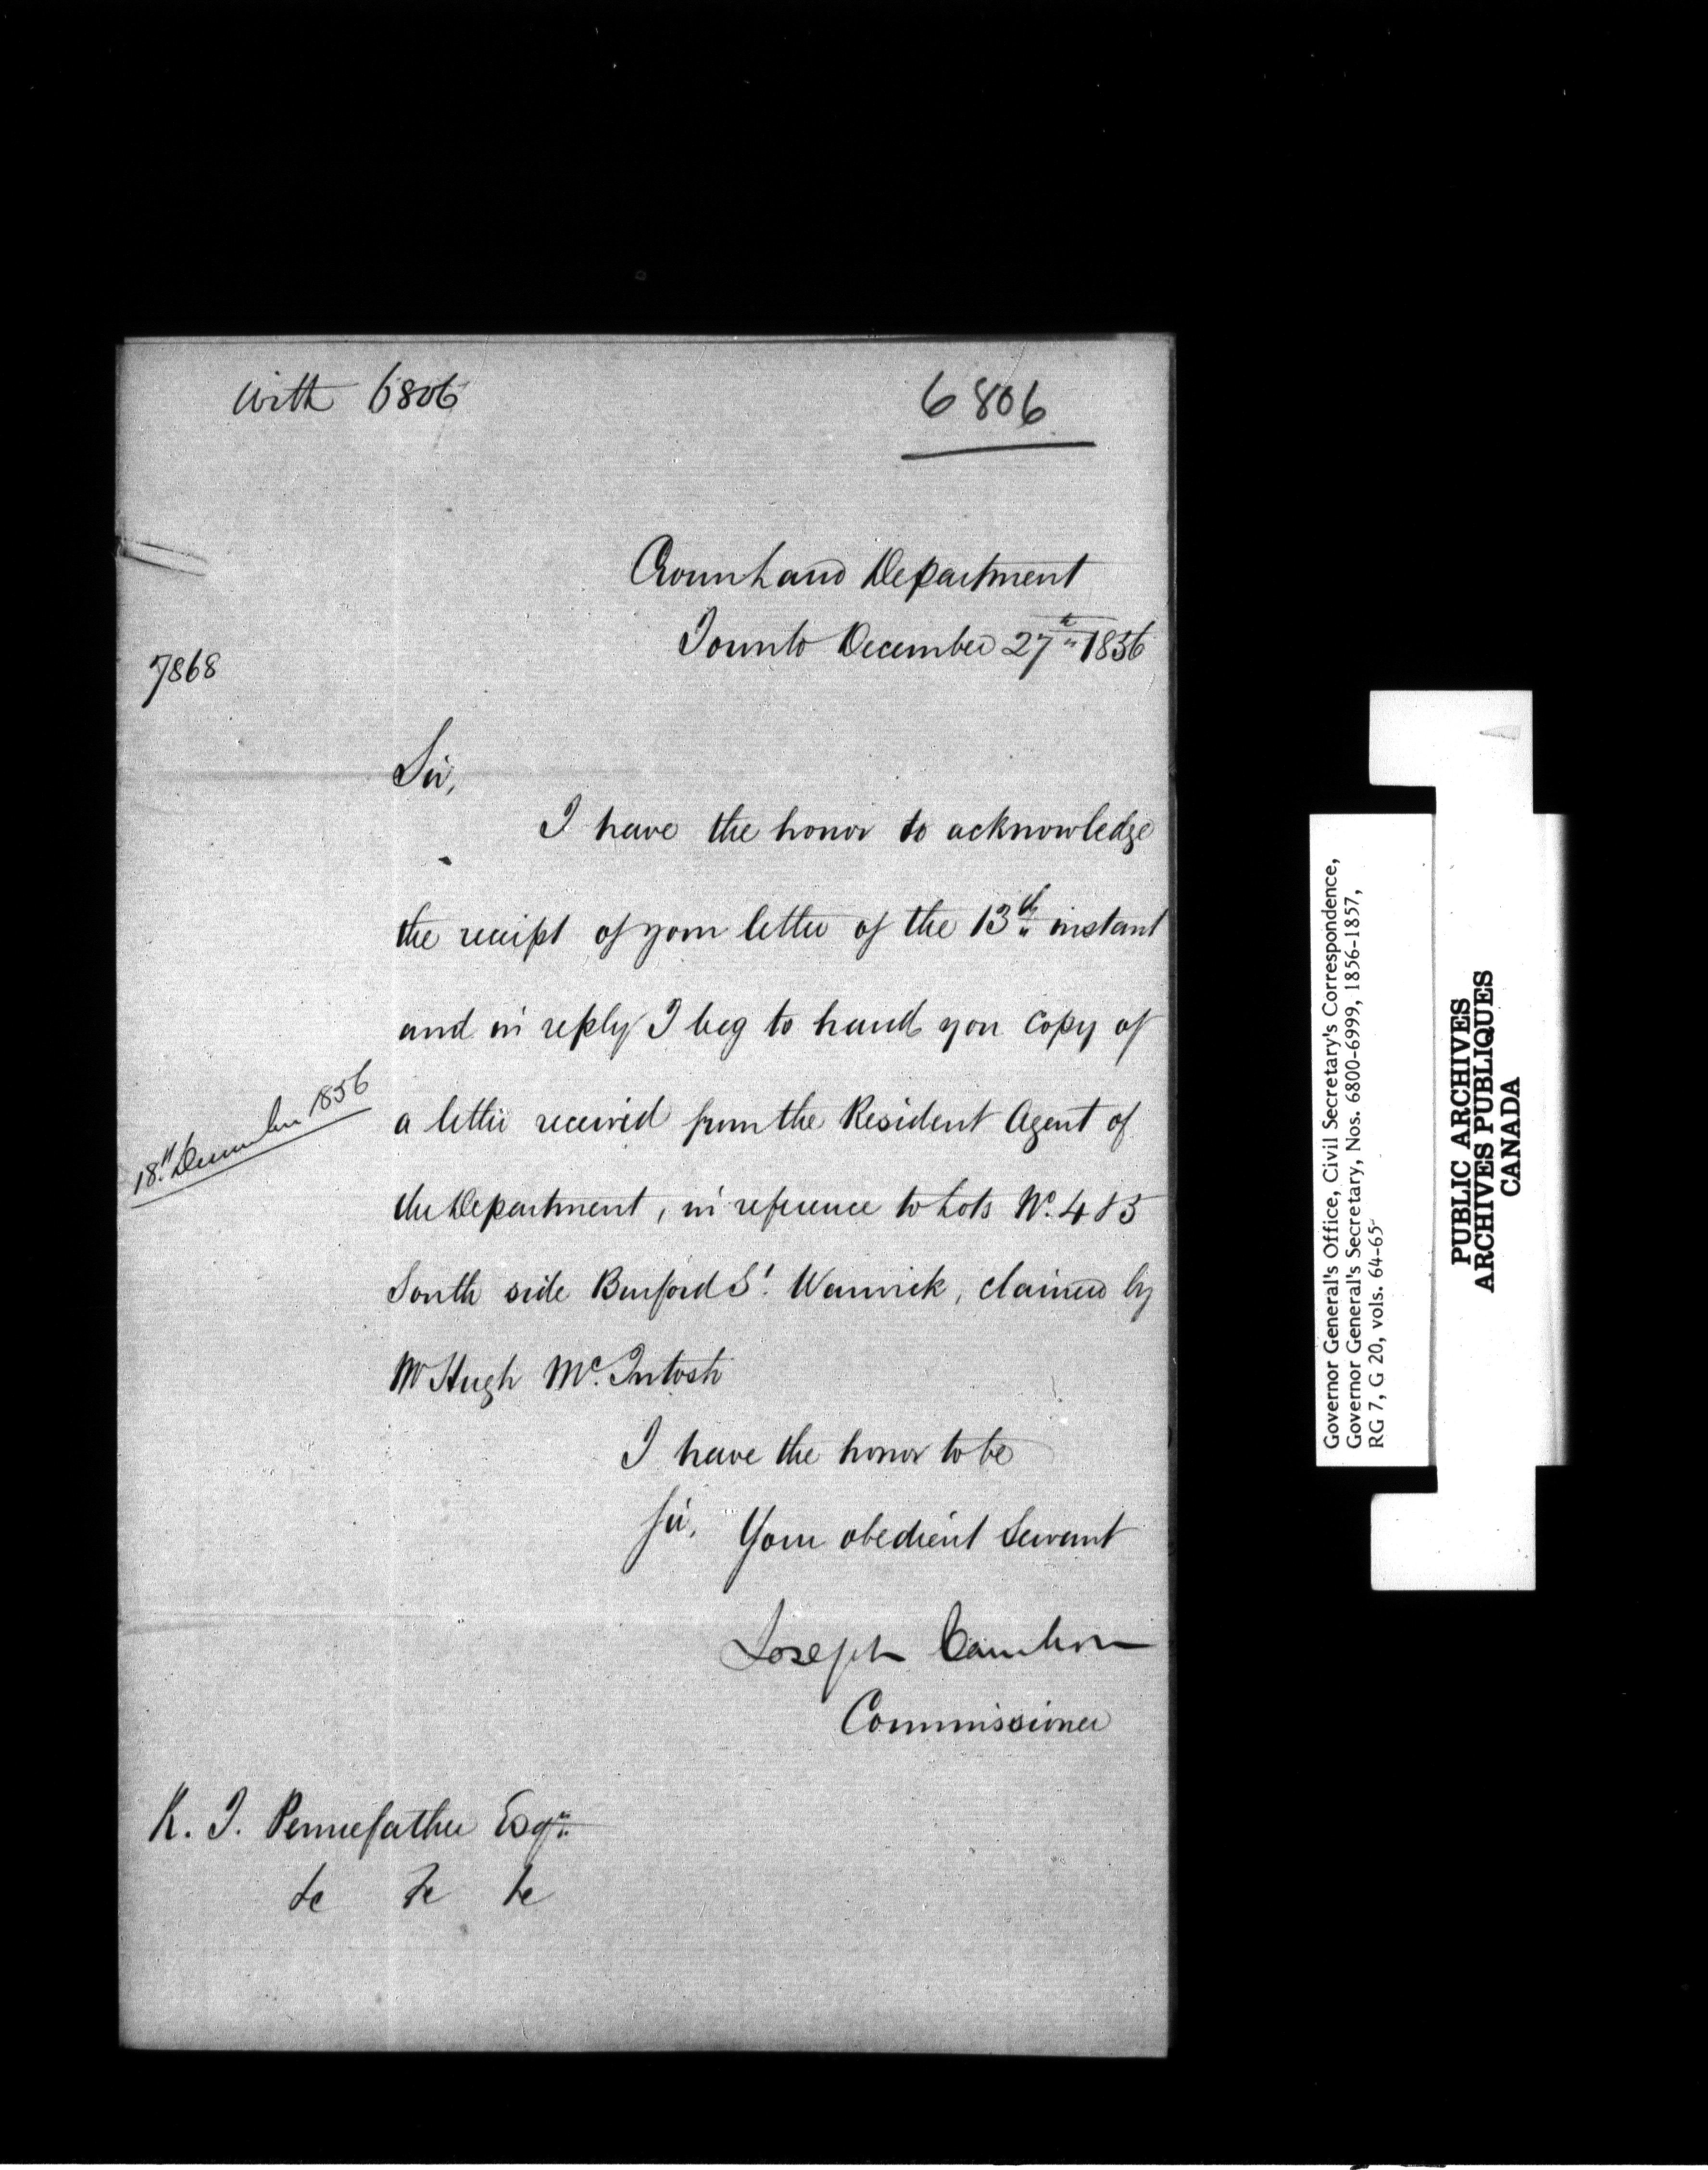 with 6806
6806
Crown Land Department
Toronto December 27th 1856
7868
Sir,
I have the honor to acknowledge
the receipt of your letter of the 13th instant
and in reply I beg to hand you copy of
18th December 1856
a letter received from the Resident Agent of
the Department, in reference to Lots No. 4 & 5
South side Burford St. Warwick, claimed by
Mr Hugh McIntosh
I have the honor to be
Sir, Your obedient Servant
Joseph Cauchon
Commissioner
R. T. Pennefather Esqr.
&c &c &c
Governor General's Office, Civil Secretary's Correspondence,
Governor General's Secretary, Nos. 6800-6999, 1856-1857,
RG 7, G 20, vols. 64-65
PUBLIC ARCHIVES
ARCHIVES PUBLIQUES
CANADA